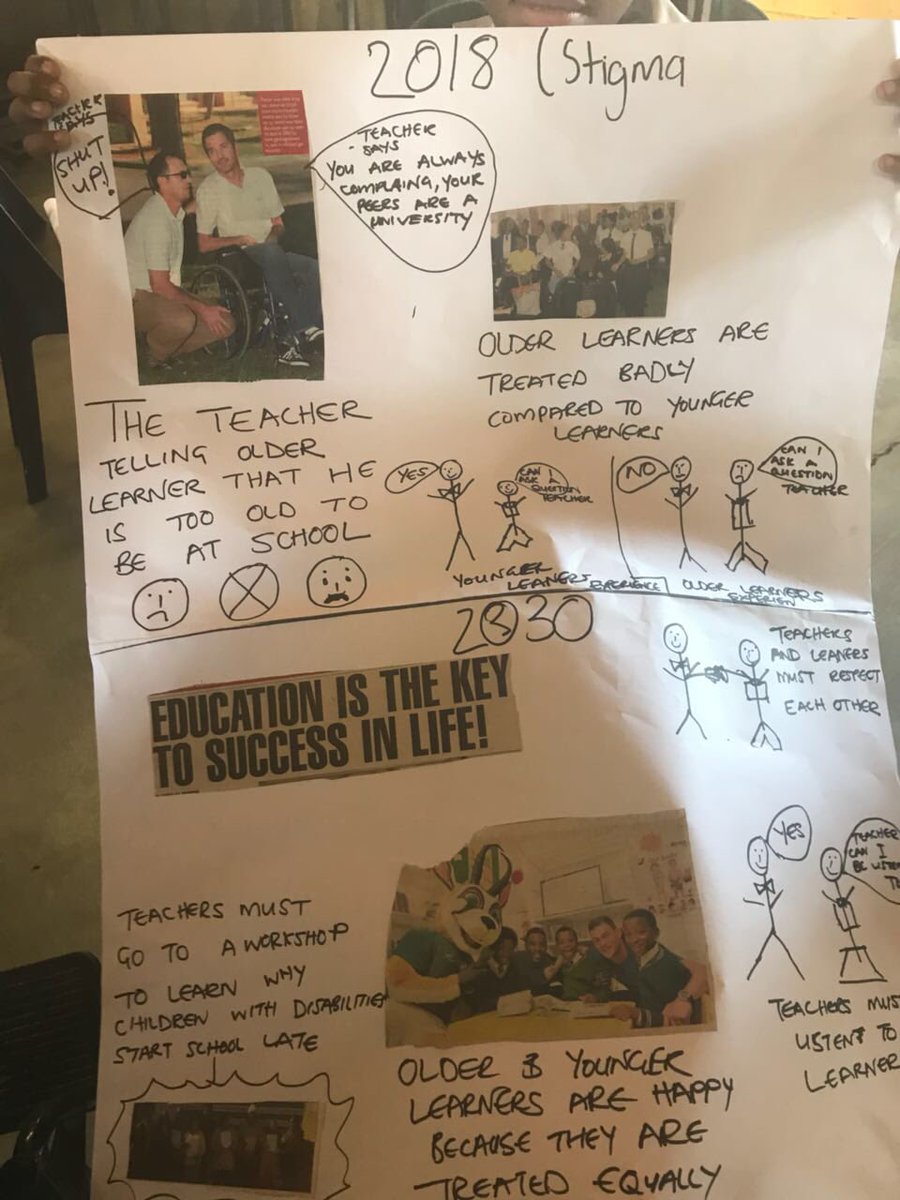 2018 (Stigma
TEACHER
SAYS
SHUT
UP!
TEACHER
SAYS
YOU ARE ALWAYS
COMPLAING, YOUR
PEERS ARE A
UNIVERSITY
THE TEACHER
TELLING OLDER
LEARNER THAT HE
IS TOO OLD TO
BE AT SCHOOL
OLDER LEARNERS ARE
TREATED BADLY
COMPARED TO YOUNGER
LEARNERS
YES
CAN I
ASK A
QUESTION
TEACHER
YOUNGER
LEANERS EXPERIENCE
NO
CAN I
ASK A
QUESTION
TEACHER
OLDER LEARNERS
EXPERIEN
2030
EDUCATION IS THE KEY
TO SUCCESS IN LIFE!
TEACHERS
AND LEANERS
MUST RESPECT
EACH OTHER
YES
TEACHER
CAN I
BE LISTEN
TO
TEACHERS MUS
LISTEN TO
LEARNER
TEACHERS MUST
GO TO A WORKSHOP
TO LEARN WHY
CHILDREN WITH DISABILITIES
START SCHOOL LATE
OLDER & YOUNGER
LEARNERS ARE HAPPY
BECAUSE THEY ARE
TREATED EQUALLY